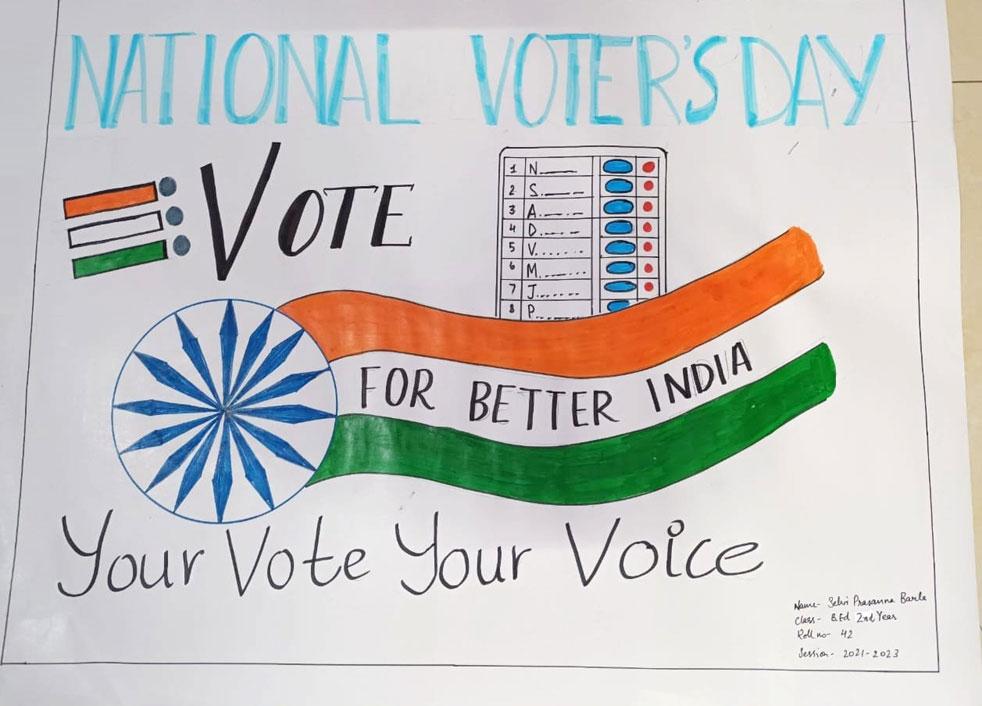 NATIONAL VOTER'S DAY
VOTE
1 N
2 S
3 A
4 D
5 V
6 M
7 J
8 P
FOR BETTER INDIA
Your Vote Your Voice
Name- Selvi Prasanna Barla
Class- B.Ed 2nd Year
Roll no- 42
Session- 2021-2023